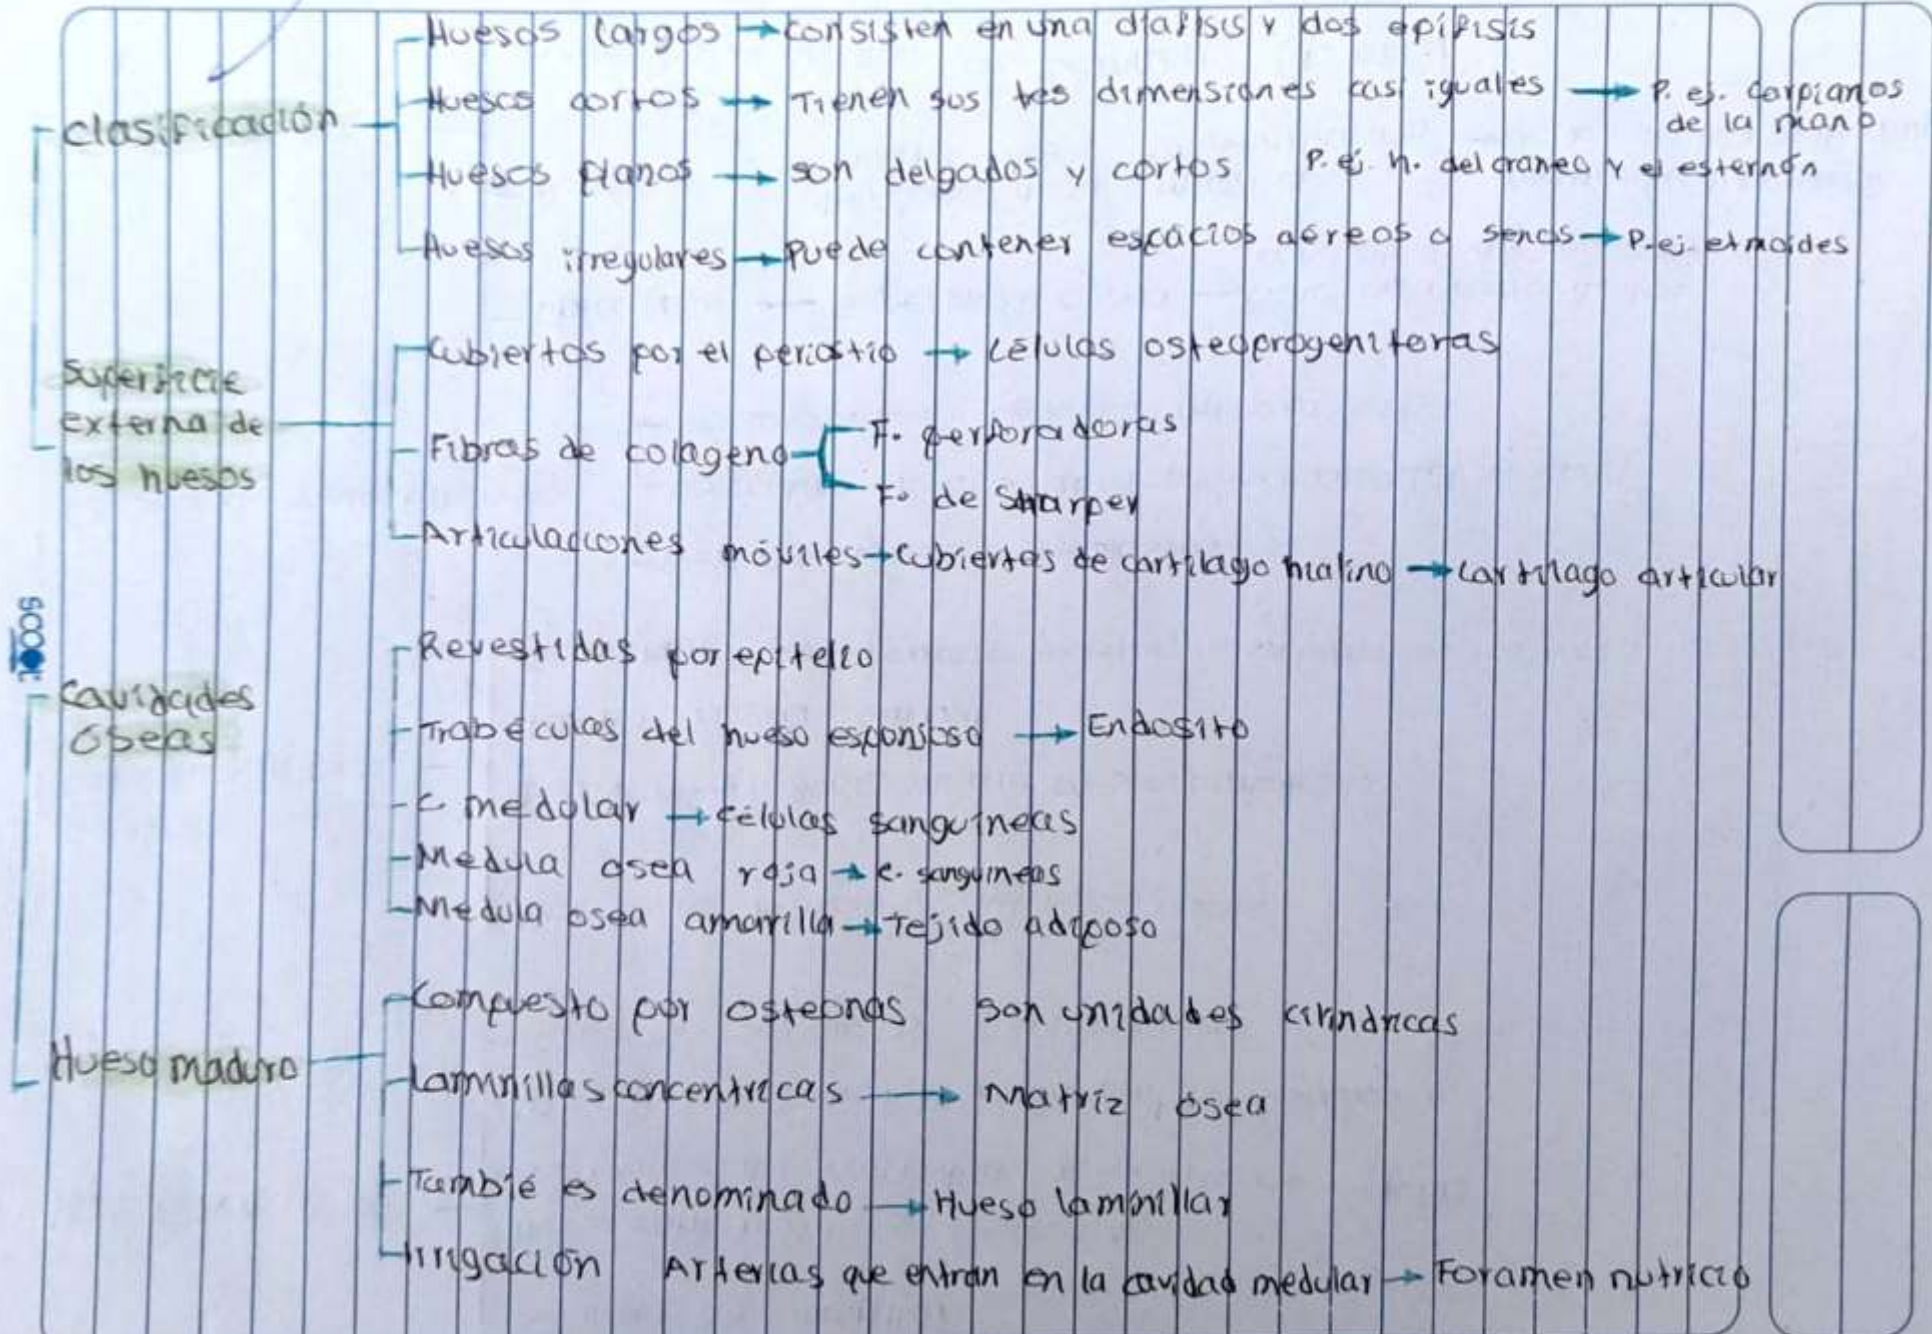 Huesos largos → consisten en una diafisis y dos epífisis
Clasificación
Huesos cortos → Tienen sus tes dimensiones casi iguales → P. ej. Carpianos
de la mano
Huesos planos → son delgados y cortos P. ej. h. del craneo y el esternón
Huesos irregulares → Puede contener espacios aéreos o senos → P. ej. etmoides
Superficie
externa de
los huesos
Cubiertos por el periostio → células osteoprogenitoras
Fibras de colageno
F. perforadoras
F. de Sharpey
Articulaciones móviles → Cubiertas de cartílago hialino → Cartílago articular
Scoot
Cavidades
óseas
Revestidas por epitelio
Trabéculas del hueso esponjoso → Endosito
C medular → células sanguíneas
Medula osea roja → c. sanguineas
Medula osea amarilla → Tejido adiposo
Hueso maduro
Compuesto por osteonas son unidades cirindricas
Laminillas concentricas → Matriz ósea
Tambié es denominado → Hueso laminillar
Irrigación Arterias que entran en la cavidad medular → Foramen nutricio